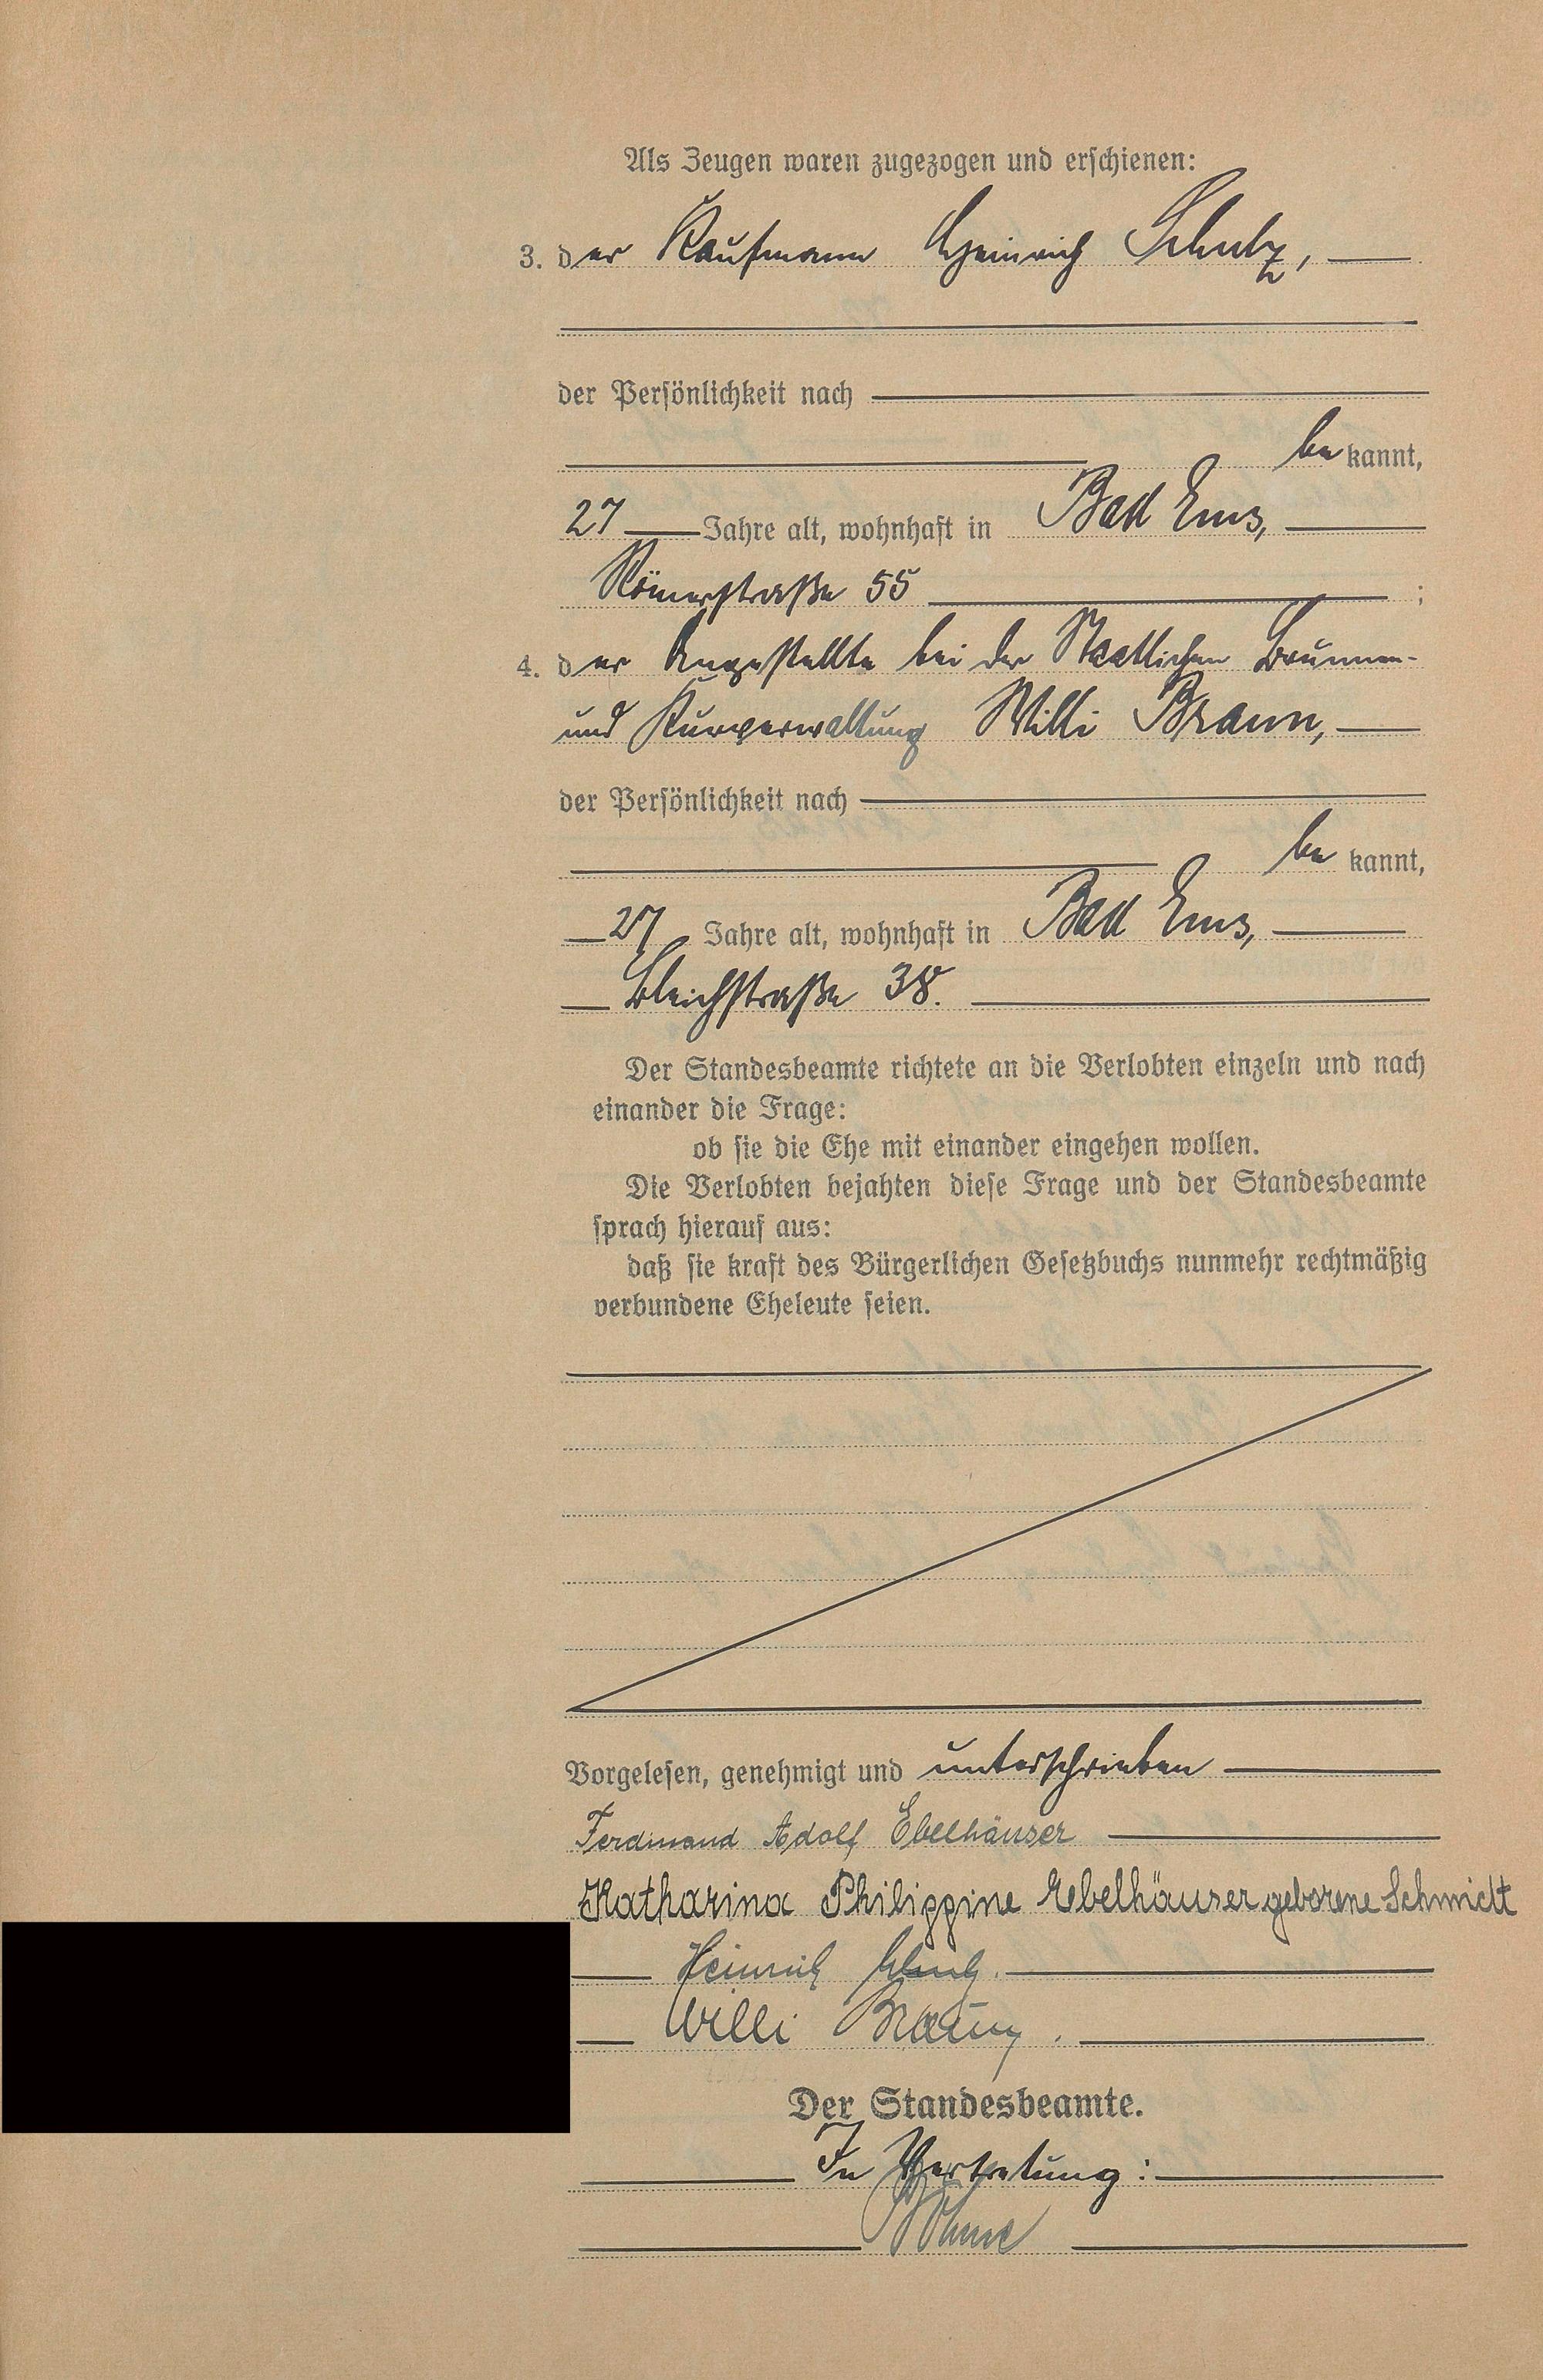 Als Zeugen waren zugezogen und erschienen:
3. der Kaufmann Heinrich Schulz,
der Persönlichkeit nach
be kannt,
27 Jahre alt, wohnhaft in Bad Ems,
Römerstraße 55 ;
4. der Angestellte bei der Staatlichen Brunnen-
und Kurverwaltung Willi Braun,
der Persönlichkeit nach
be kannt,
27 Jahre alt, wohnhaft in Bad Ems,
Bleichstraße 38.
Der Standesbeamte richtete an die Verlobten einzeln und nach
einander die Frage:
ob sie die Ehe mit einander eingehen wollen.
Die Verlobten bejahten diese Frage und der Standesbeamte
sprach hierauf aus:
daß sie kraft des Bürgerlichen Gesetzbuchs nunmehr rechtmäßig
verbundene Eheleute seien.
Vorgelesen, genehmigt und unterschrieben
Ferdinand Adolf Ebelhäuser
Katharina Philippine Ebelhäuser geborene Schmidt
Heinrich Schulz.
Willi Braun.
Der Standesbeamte.
In Vertretung:
Böhme